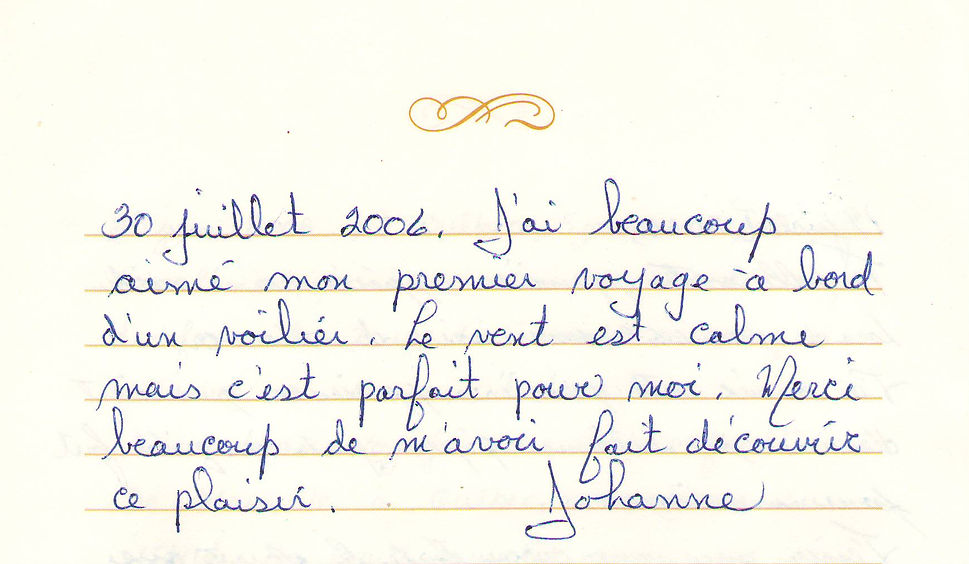 30 juillet 2006. J'ai beaucoup
aimé mon premier voyage à bord
d'un voilier. Le vent est calme
mais c'est parfait pour moi. Merci
beaucoup de m'avoir fait découvrir
ce plaisir. Johanne